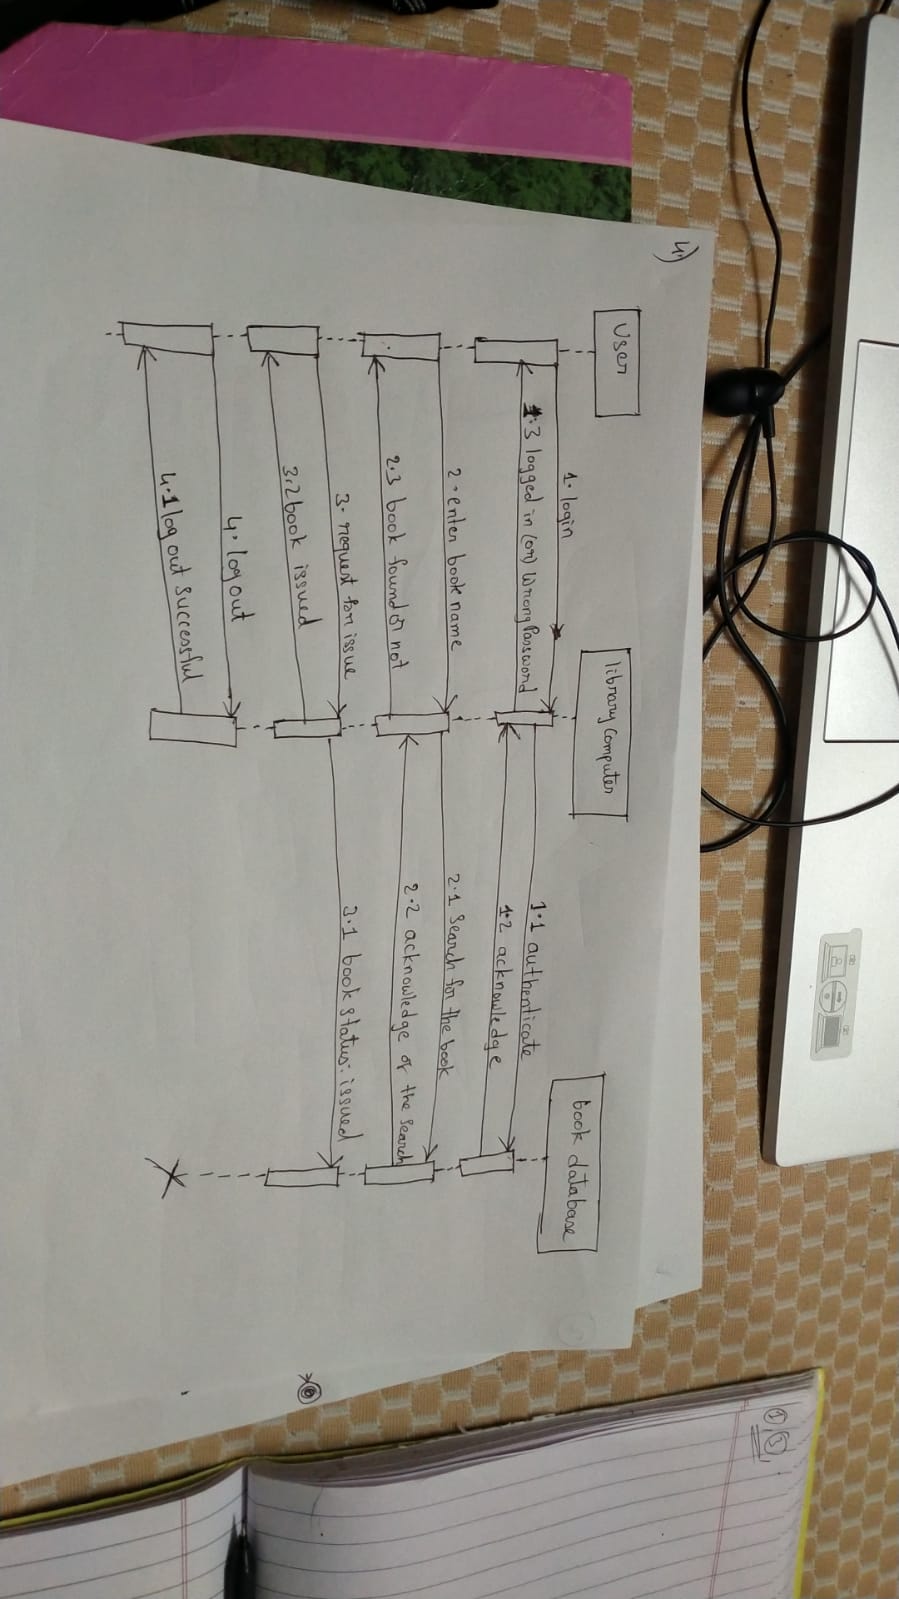 4)
User
library Computer
book database
1. login
1.1 authenticate
1.2 acknowledge
1.3 logged in (or) Wrong Password
2. enter book name
2.1 Search for the book
2.2 acknowledge of the search
2.3 book found or not
3. request for issue
3.1 book status: issued
3.2 book issued
4. log out
4.1 log out successful